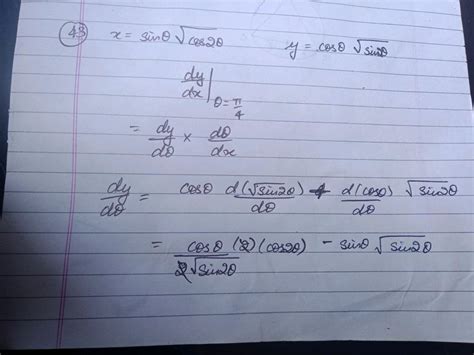 43 x = sinθ √cos2θ y = cosθ √sin2θ
dy/dx |θ = π/4
= dy/dθ × dθ/dx
dy/dθ = cosθ d(√sin2θ)/dθ + d(cosθ)/dθ √sin2θ
= cosθ (2)(cos2θ)/2√sin2θ - sinθ √sin2θ